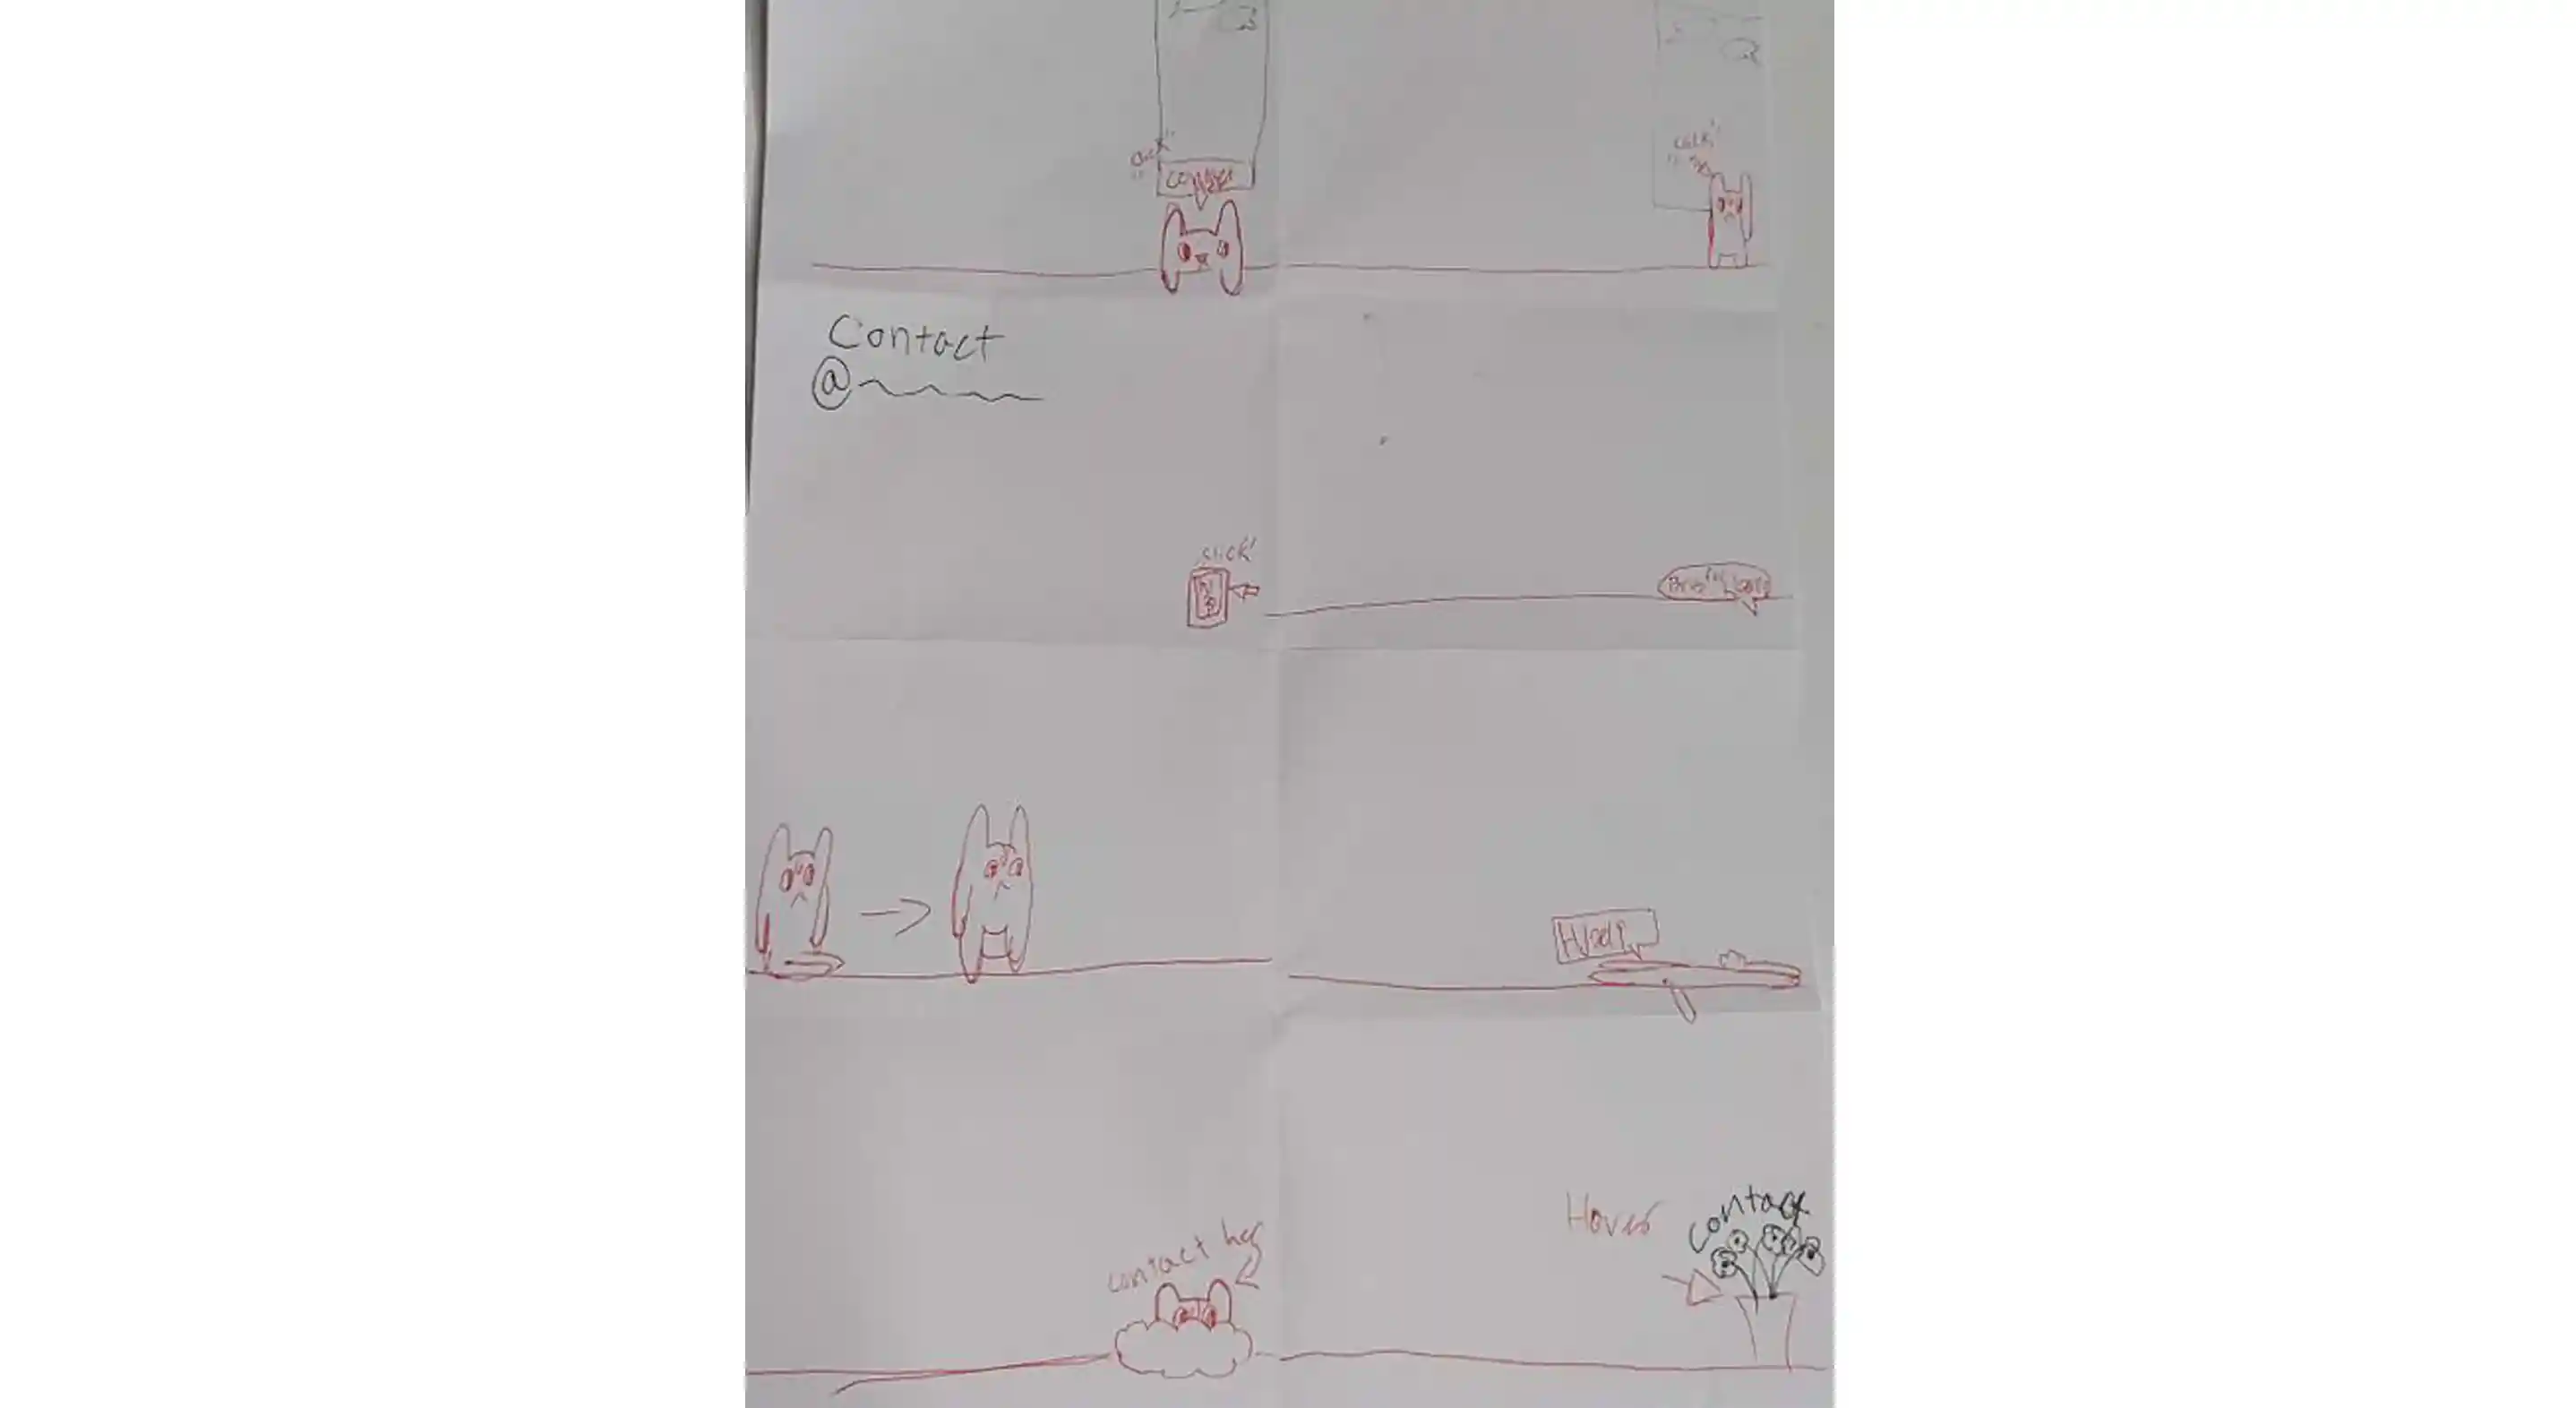 click"
contact
click'
Contact
@
click'
contact her
Hover
contact